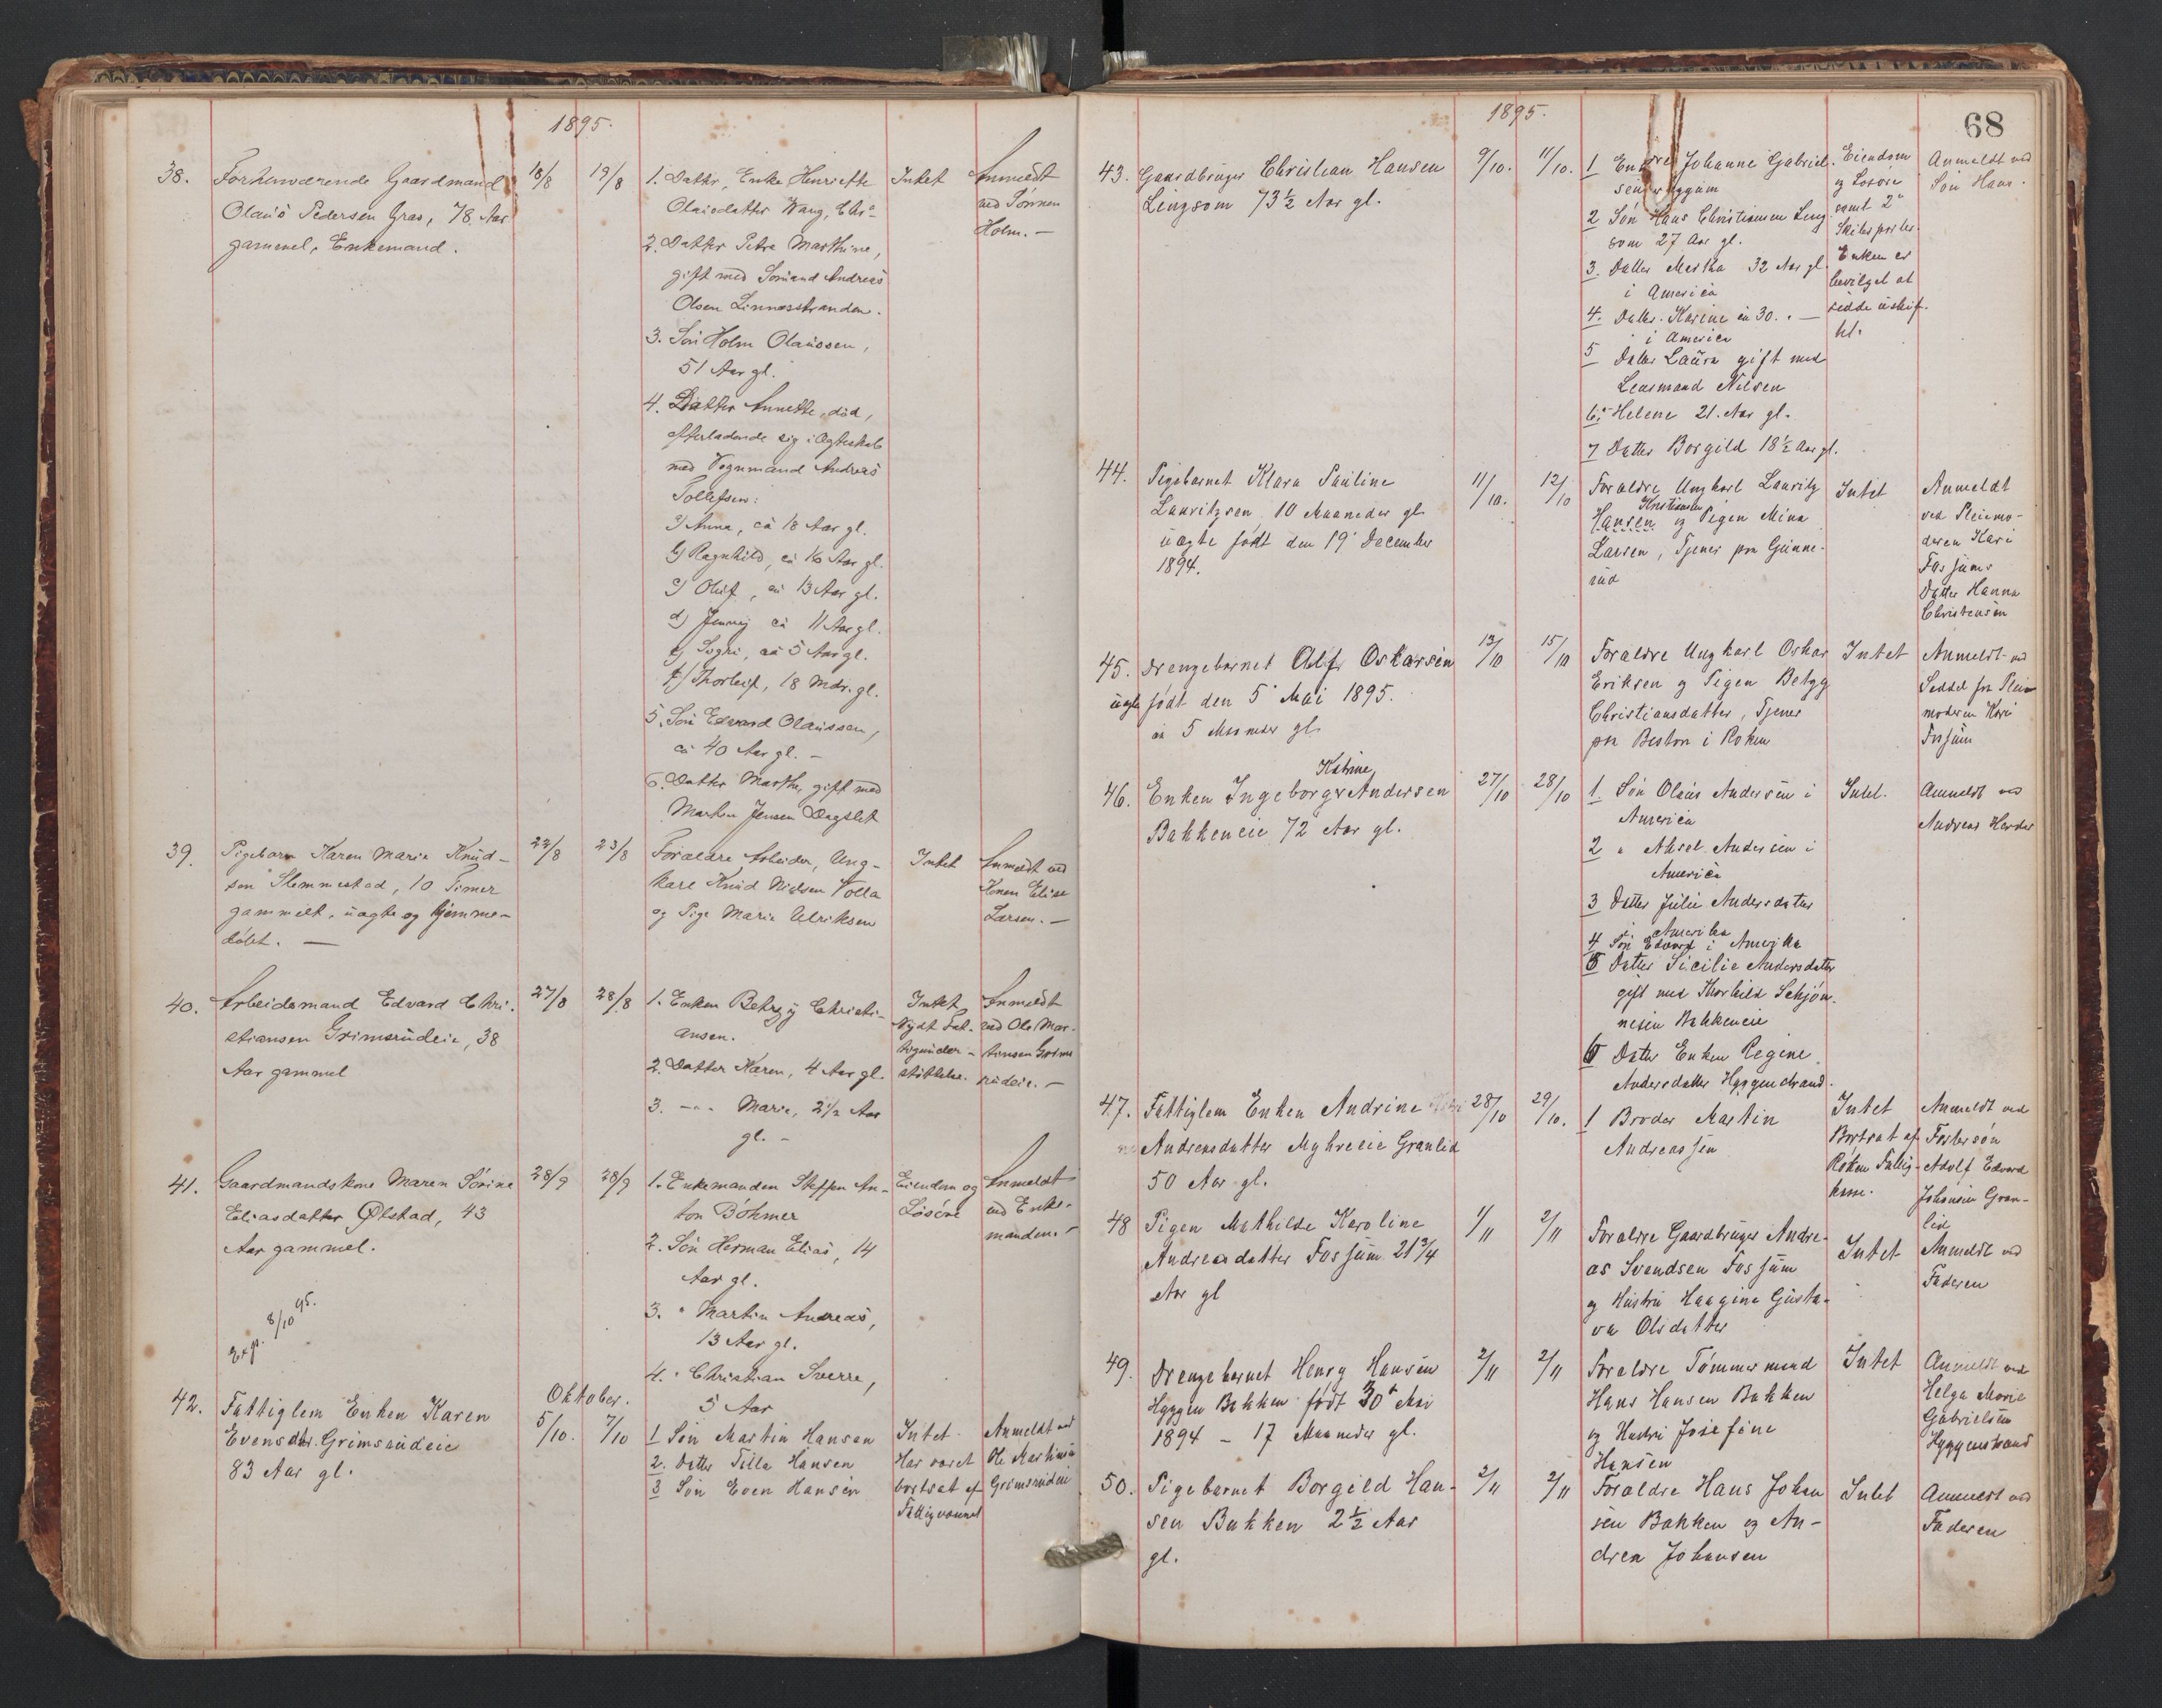 1895.
38.
Forhenværende Gaardmand
Olaus Pedersen Grav, 78 Aar
gammel, Enkemand.
18/8
19/8
1. Datter, Enke Henriette
Olausdatter Wang, Chra
2. Datter Petra Marthine,
gift med Sømand Andreas
Olsen Linnæsstranden.
3. Søn Holm Olaussen,
51 Aar gl.
4. Datter Annette, død,
efterladende sig i Ægteskab
med Vognmand Andreas
Tollefsen:
a) Anna, ca 18 Aar gl.
b) Ragnhild, ca 16 Aar gl.
c) Oluf, ca 13 Aar gl.
d) Jenny ca 11 Aar gl.
e) Sogni, ca 5 Aar gl.
f) Thorleif, 18 Mdr. gl.
5. Søn Edvard Olaussen,
ca 40 Aar gl. –
6. Datter Marthe, gift med
Marten Jensen Dagslet
Intet
Anmeldt
ved Sønnen
Holm. –
39.
Pigebarn Karen Marie Knud-
sen Slemmestad, 10 Timer
gammelt, uægte og hjemme-
døbt. –
22/8
23/8
Forældre Arbeider, Ung-
karl Knud Nielsen Volla
og Pige Marie Ulriksen
Intet
Anmeldt ved
Konen Elise
Larsen. –
40.
Arbeidsmand Edvard Chri-
stiansen Grimsrudeie, 38
Aar gammel
27/8
28/8
1. Enken Betzy Christi-
ansen.
2. Datter Karen, 4 Aar gl.
3. – " – Marie, 2 1/2 Aar
gl. –
Intet
Nydt Fat-
tigunder-
støttelse.
Anmeldt
ved Ole Mar-
tinsen Grims
rudeie. –
41.
Gaardmandskone Maren Sørine
Eliasdatter Ølstad, 43
Aar gammel.
Exp. 8/10 95.
28/9
28/9
1. Enkemanden Steffen An-
ton Böhmer
2. Søn Herman Elias, 14
Aar gl.
3. " Martin Andreas,
13 Aar gl.
4. " Christian Sverre,
5 Aar
Eiendom og
Løsøre
Anmeldt
ved Enke-
manden. –
Oktober.
42.
Fattiglem Enken Karen
Evensdtr. Grimsrudeie
83 Aar gl.
5/10.
7/10
1 Søn Martin Hansen
2. Datter Tilla Hansen
3 Søn Even Hansen
Intet
Har været
bortsat af
Fattigvæsenet
Anmeldt ved
Ole Martinsen
Grimsrudeie
1895.
68
43.
Gaardbruger Christian Hansen
Lingsom 73 1/2 Aar gl.
9/10.
11/10.
1 Enken Johanne Gabriel-
sen Hyggum
2 Søn Hans Christiansen Ling-
som 27 Aar gl.
3. Datter Martha 32 Aar gl.
i America
4. Datter Karine ca 30. " –
i America
5 Datter Laura gift med
Lensmand Nilsen
6. " Helene 21. Aar gl.
7 Datter Borgild 18 1/2 Aar gl.
Eiendom
og Løsøre
samt 2
Enken er
bevilget at
sidde uskif-
tet.
Anmeldt ved
Søn Hans.
44.
Pigebarnet Klara Pauline
Lauritzen 10 Maaneder gl
uægte født den 19' December
1894.
11/10.
12/10
Forældre Ungkarl Lauritz
Kristiansen
Hansen og Pigen Mina
Larsen, Tjener paa Gunne-
rud
Intet
Anmeldt
ved Pleiemo-
deren Kari
Fossums
Datter Hanna
Christensen
45.
Drengebarnet Alf Oskarsen
uægte født den 5' Mai 1895.
ca 5 Maaneder gl.
13/10
15/10
Forældre Ungkarl Oskar
Eriksen og Pigen Betzy
Christiansdatter, Tjener
paa Boston i Røken
Intet
Anmeldt ved
Seddel fra Pleie
moderen Kari
Fossum
46.
Katrine
Enken Ingeborg Andersen
Bakkeneie 72 Aar gl.
27/10
28/10
1. Søn Olaus Andersen i
America
2 " Aksel Andersen i
America
3 Datter Julie Andersdatter
i Amerika
4 Søn Edvard i Amerika
5 Datter Sicilie Andersdatter
gift med Thorkild Schjøn-
nesen Bakkeneie
6 Datter Enken Regine
Andersdatter Hyggenstrand.
Intet.
Anmeldt ved
Andreas Herder
47.
Fattiglem Enken Andrine
Andreasdatter Myhreeie Granlid
50 Aar gl.
28/10
29/10.
1 Broder Martin
Andreassen
Intet
Bortsat af
Røken Fattig-
kom.
Anmeldt ved
Fostersøn
Adolf Edvard
Johansen Gran-
lid
48
Pigen Mathilde Karoline
Andreasdatter Fossum 21 3/4
Aar gl
1/11
2/11
Forældre Gaardbruger Andre-
as Svendsen Fossum
og Hustru Haagine Gusta-
va Olsdatter
Intet
Anmeldt ved
Faderen
49.
Drengebarnet Henry Hansen
Hyggen Bakken født 30' Mai
1894 – 17 Maaneder gl.
2/11
2/11
Forældre Tømmermand
Hans Hansen Bakken
og Hustru Josefine
Hansen
Intet
Anmeldt ved
Helga Marie
Gabrielsen
Hyggenstrand
50.
Pigebarnet Borgild Han-
sen Bakken 2 1/2 Aar
gl.
2/11
2/11
Forældre Hans Johan
sen Bakken og An-
drea Johansen
Intet
Anmeldt ved
Faderen